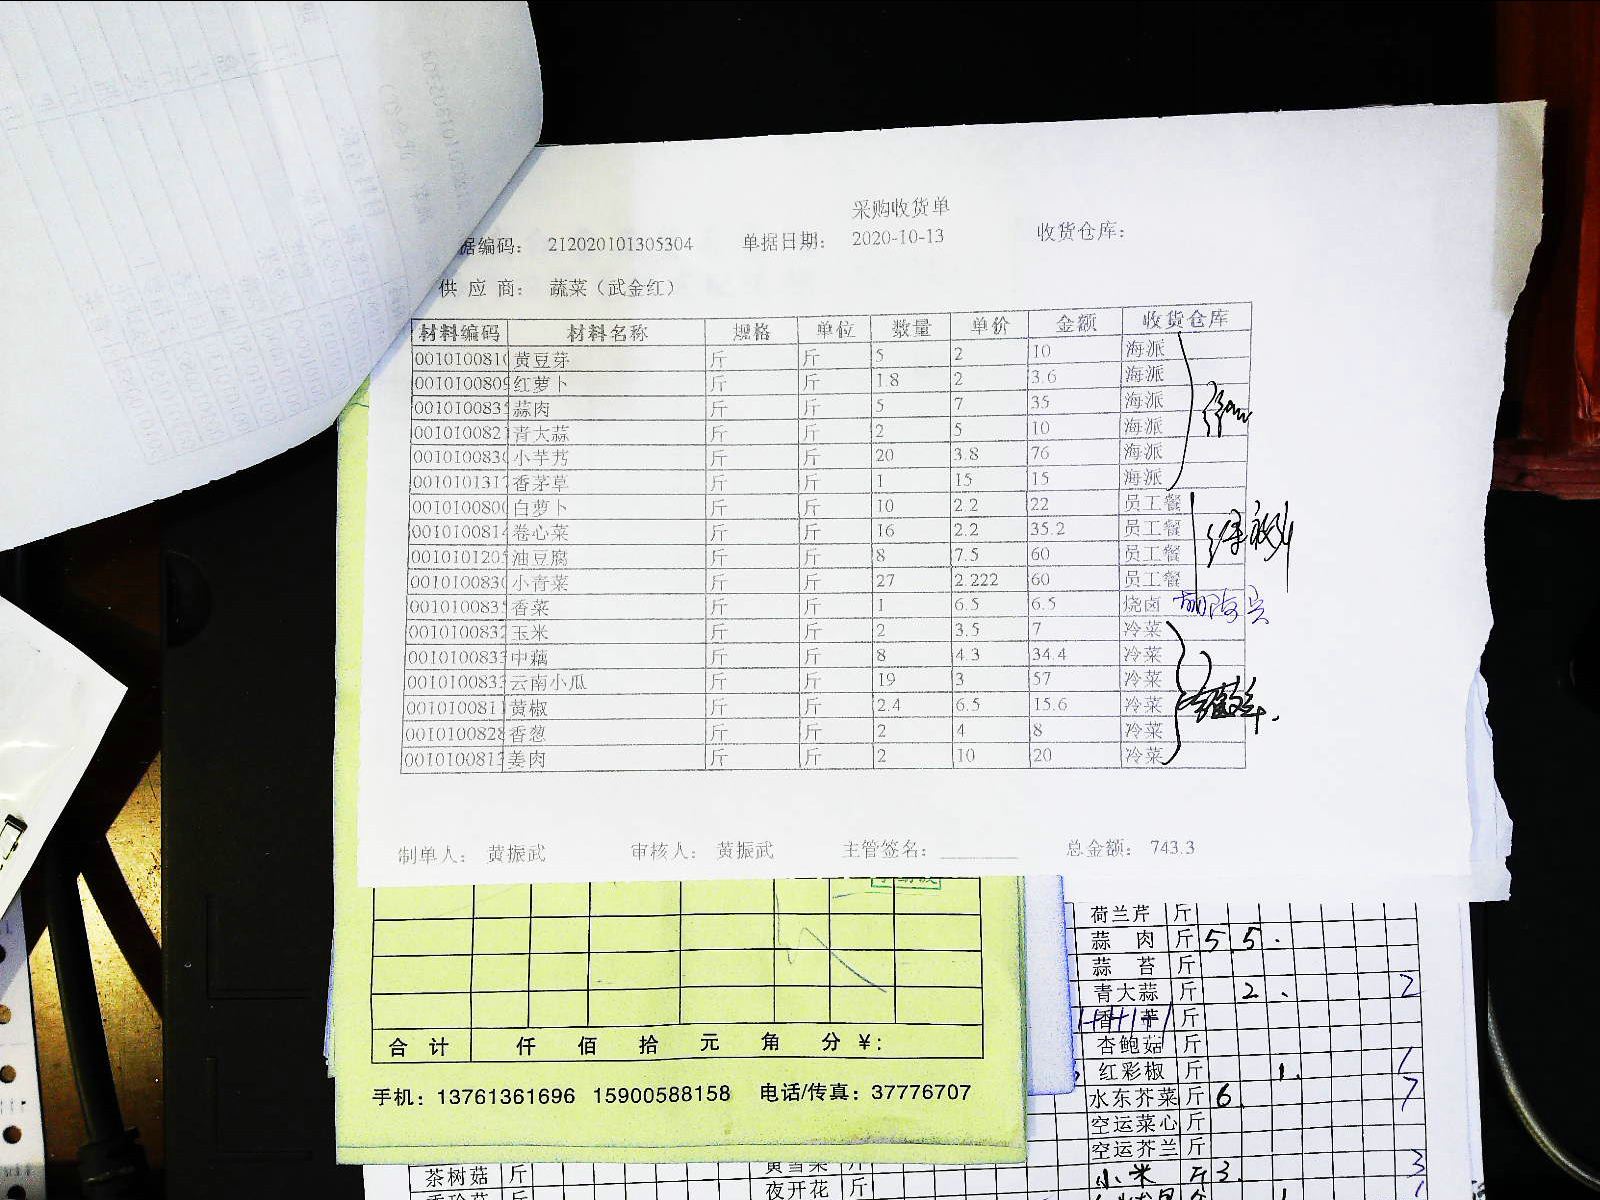 采购收货单
据编码： 212020101305304 单据日期： 2020-10-13 收货仓库：
供 应 商： 蔬菜（武金红）
材料编码 材料名称 规格 单位 数量 单价 金额 收货仓库
001010081 黄豆芽 斤 斤 5 2 10 海派
001010080 红萝卜 斤 斤 1.8 2 3.6 海派
001010083 蒜肉 斤 斤 5 7 35 海派
001010082 青大蒜 斤 斤 2 5 10 海派
001010083 小芋艿 斤 斤 20 3.8 76 海派
001010131 香茅草 斤 斤 1 15 15 海派
001010080 白萝卜 斤 斤 10 2.2 22 员工餐
001010081 卷心菜 斤 斤 16 2.2 35.2 员工餐
001010120 油豆腐 斤 斤 8 7.5 60 员工餐
001010083 小青菜 斤 斤 27 2.222 60 员工餐
001010083 香菜 斤 斤 1 6.5 6.5 烧卤
001010083 玉米 斤 斤 2 3.5 7 冷菜
001010083 中藕 斤 斤 8 4.3 34.4 冷菜
001010083 云南小瓜 斤 斤 19 3 57 冷菜
001010081 黄椒 斤 斤 2.4 6.5 15.6 冷菜
001010082 香葱 斤 斤 2 4 8 冷菜
001010081 姜肉 斤 斤 2 10 20 冷菜
制单人： 黄振武 审核人： 黄振武 主管签名： 总金额： 743.3
合 计 仟 佰 拾 元 角 分 ¥:
手机：13761361696 15900588158 电话/传真：37776707
荷兰芹 斤
蒜 肉 斤 5 5 .
蒜 苔 斤
青大蒜 斤 2 . 2
香 芋 斤
杏鲍菇 斤
红彩椒 斤 1. 1
水东芥菜 斤 6 7
空运菜心 斤
空运芥兰 斤
小 米 斤 3. 3
茶树菇 斤
夜开花 斤